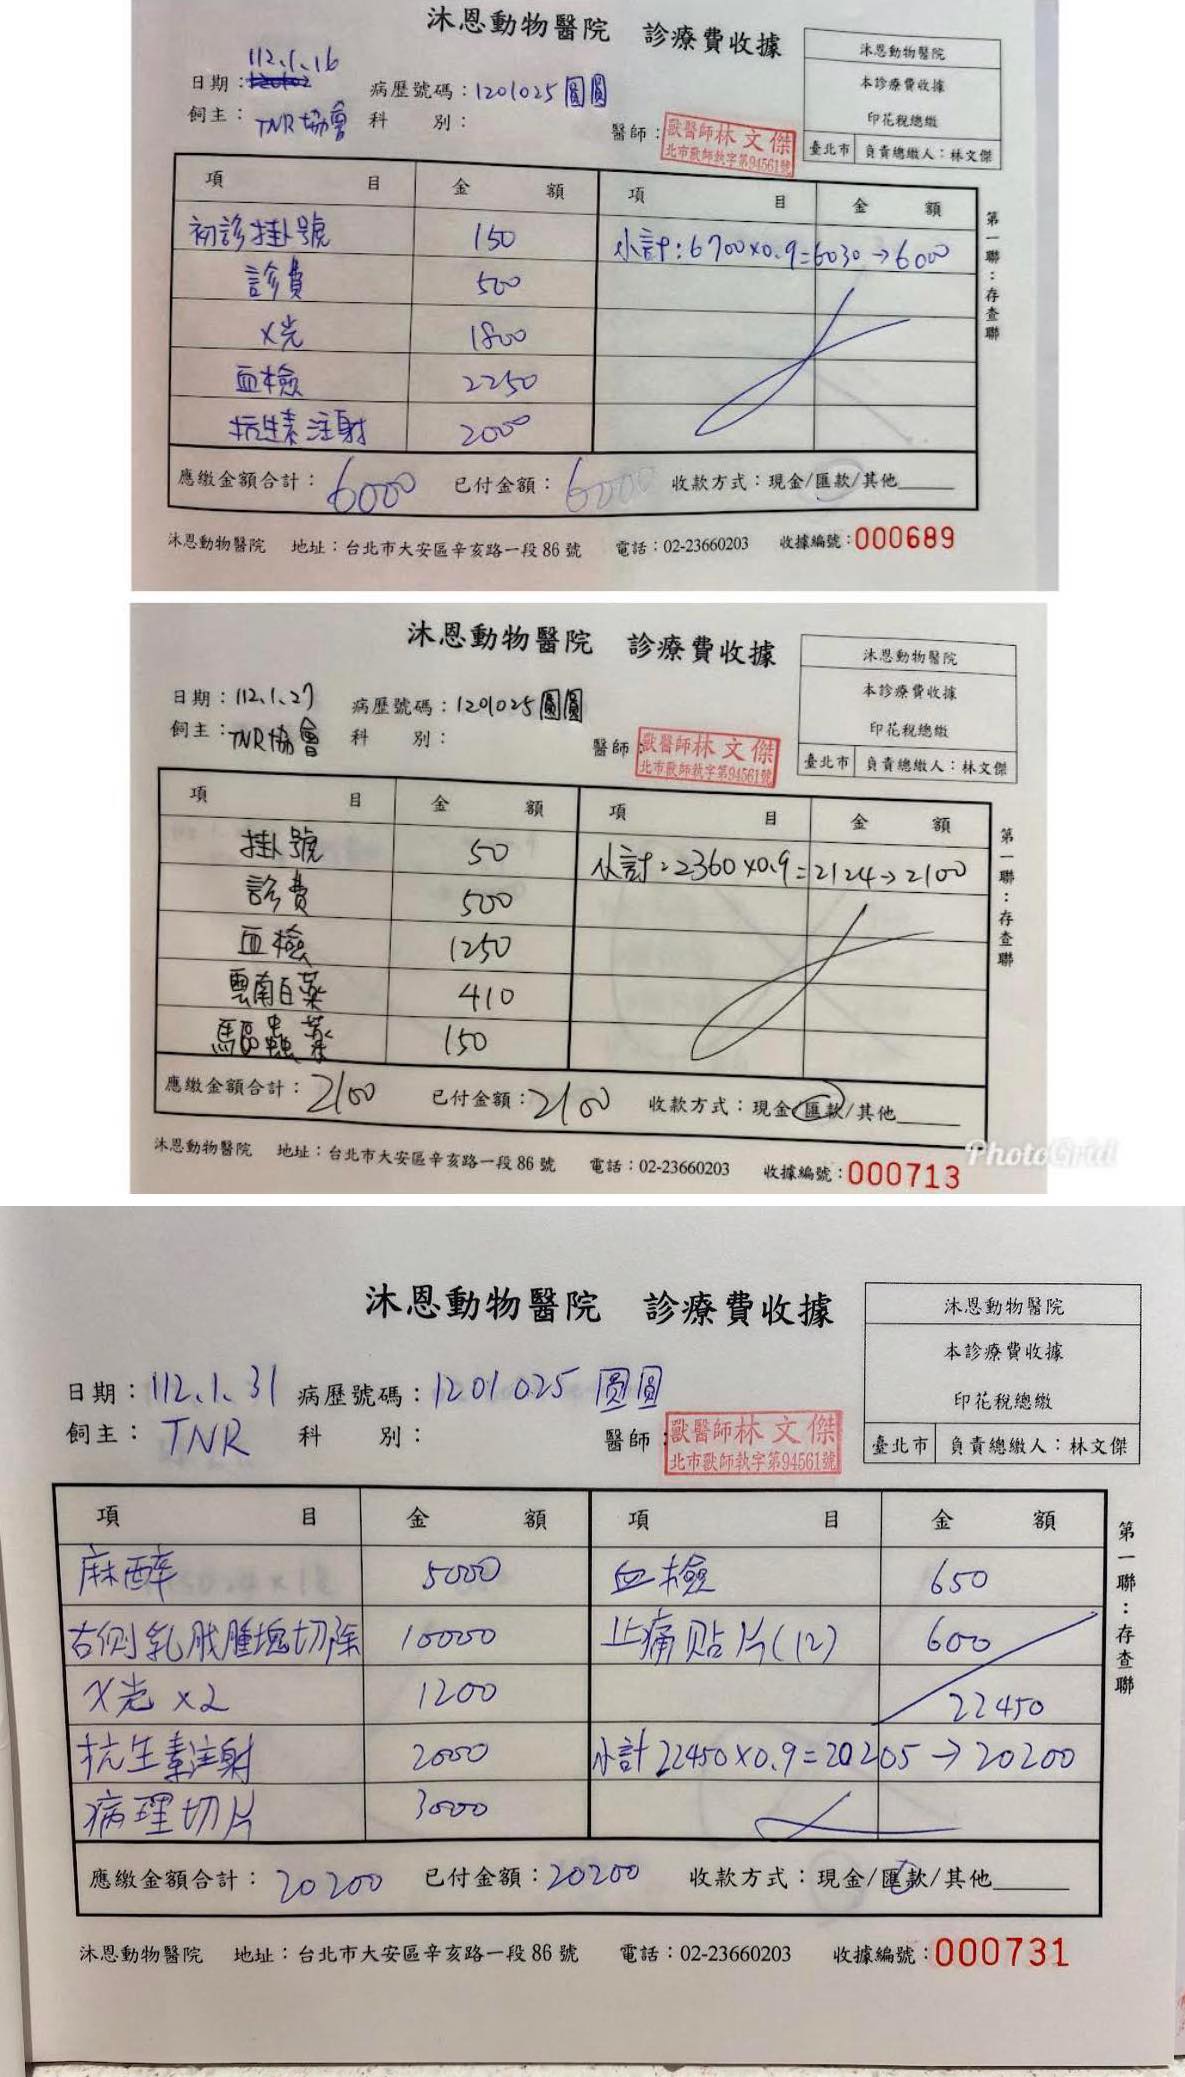 沐恩動物醫院 診療費收據
沐恩動物醫院
本診療費收據
印花稅總繳
臺北市 負責總繳人：林文傑
日期：112.1.16
病歷號碼：1201025 圓圓
飼主：TNR協會 科 別：
醫師：獸醫師林文傑
北市獸師執字第94561號
項 目 金 額 項 目 金 額
初診掛號 150 小計：6700x0.9=6030→6000
診費 500
X光 1800
血檢 2250
抗生素注射 2000
應繳金額合計：6000 已付金額：6000 收款方式：現金/匯款/其他
第一聯：存查聯
沐恩動物醫院 地址：台北市大安區辛亥路一段86號 電話：02-23660203 收據編號：000689
沐恩動物醫院 診療費收據
沐恩動物醫院
本診療費收據
印花稅總繳
臺北市 負責總繳人：林文傑
日期：112.1.27 病歷號碼：1201025圓圓
飼主：TNR協會 科 別：
醫師：獸醫師林文傑
北市獸師執字第94561號
項 目 金 額 項 目 金 額
掛號 50 小計：2360x0.9=2124→2100
診費 500
血檢 1250
雲南白藥 410
驅蟲藥 150
應繳金額合計：2100 已付金額：2100 收款方式：現金/匯款/其他
第一聯：存查聯
沐恩動物醫院 地址：台北市大安區辛亥路一段86號 電話：02-23660203 收據編號：000713
PhotoGrid
沐恩動物醫院 診療費收據
沐恩動物醫院
本診療費收據
印花稅總繳
臺北市 負責總繳人：林文傑
日期：112.1.31 病歷號碼：1201025 圓圓
飼主：TNR 科 別：
醫師：獸醫師林文傑
北市獸師執字第94561號
項 目 金 額 項 目 金 額
麻醉 5000 血檢 650
右側乳腺腫塊切除 10000 止痛貼片(12) 600
X光x2 1200 22450
抗生素注射 2000 小計22450x0.9=20205→20200
病理切片 3000
應繳金額合計：20200 已付金額：20200 收款方式：現金/匯款/其他
第一聯：存查聯
沐恩動物醫院 地址：台北市大安區辛亥路一段86號 電話：02-23660203 收據編號：000731